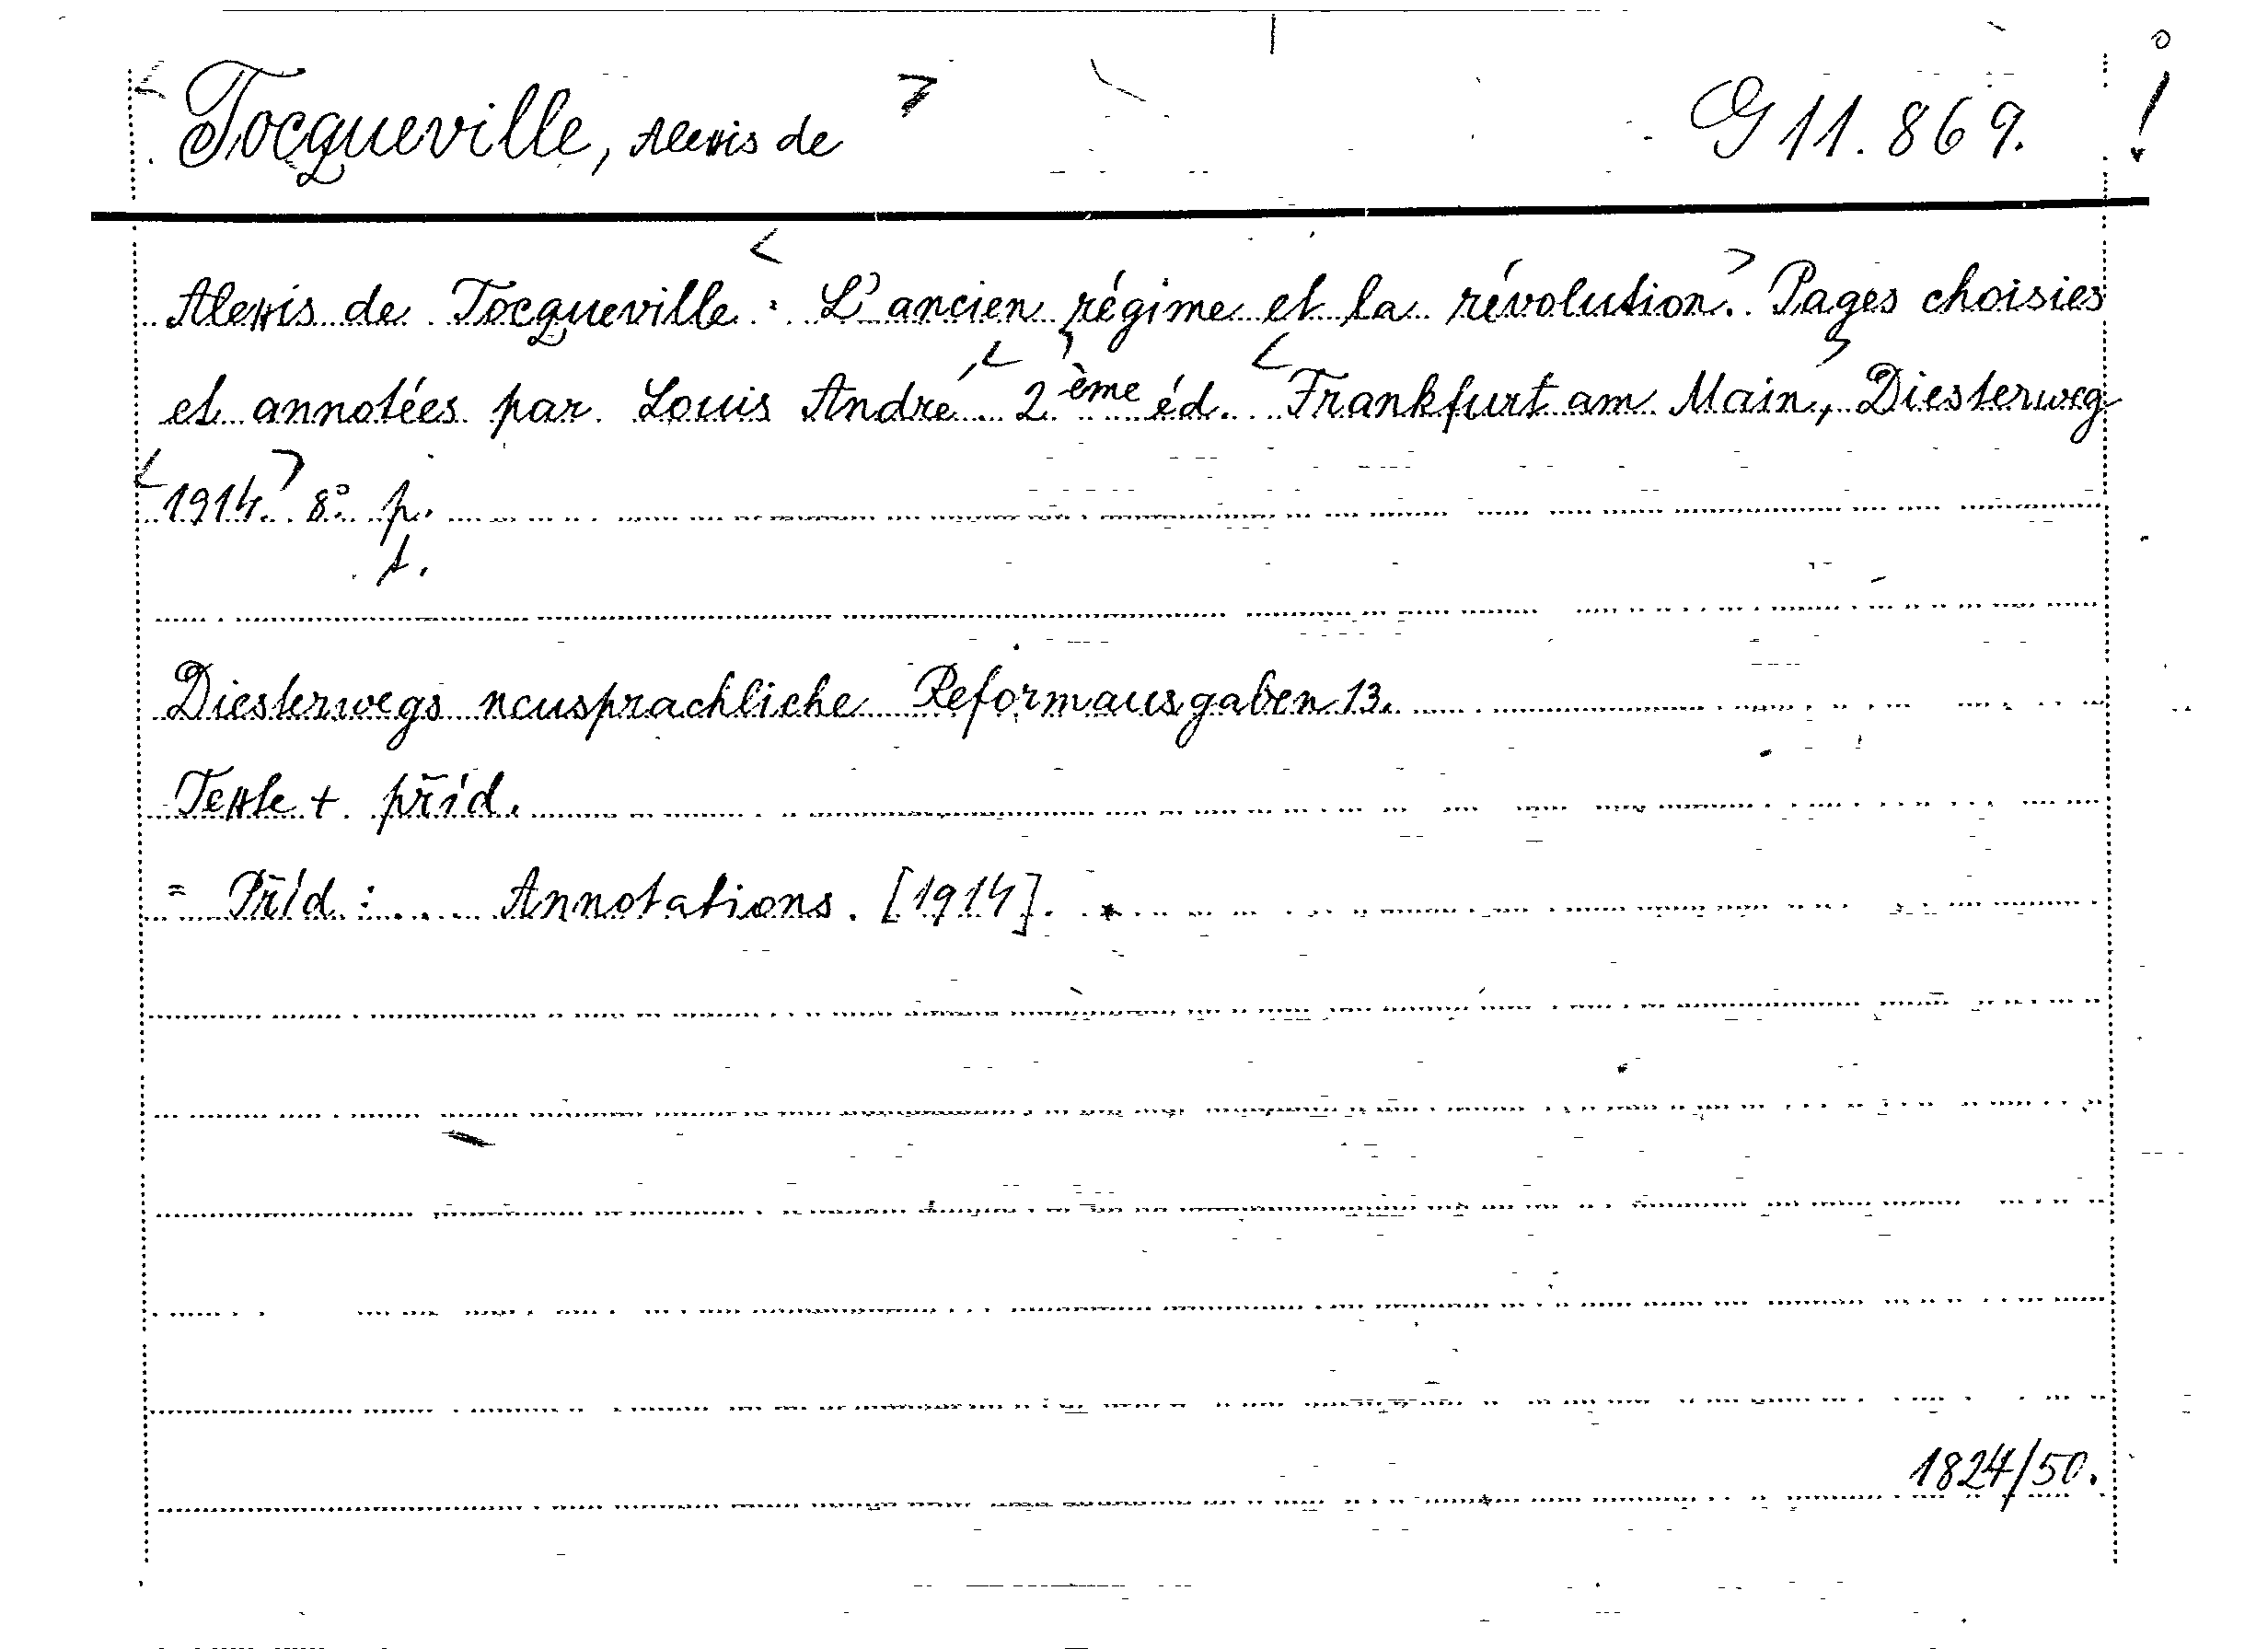 Tocqueville, Alexis de G 11.869. !
Alexis de Tocqueville: L'ancien régime et la révolution. Pages choisies
et annotées par Louis André. 2ème éd. Frankfurt am Main, Diesterweg
1914. 8° p.
Diesterwegs neusprachliche Reformausgaben 13.
Texte + příd.
= Příd: .. Annotations. [1914]. *
1824/50.